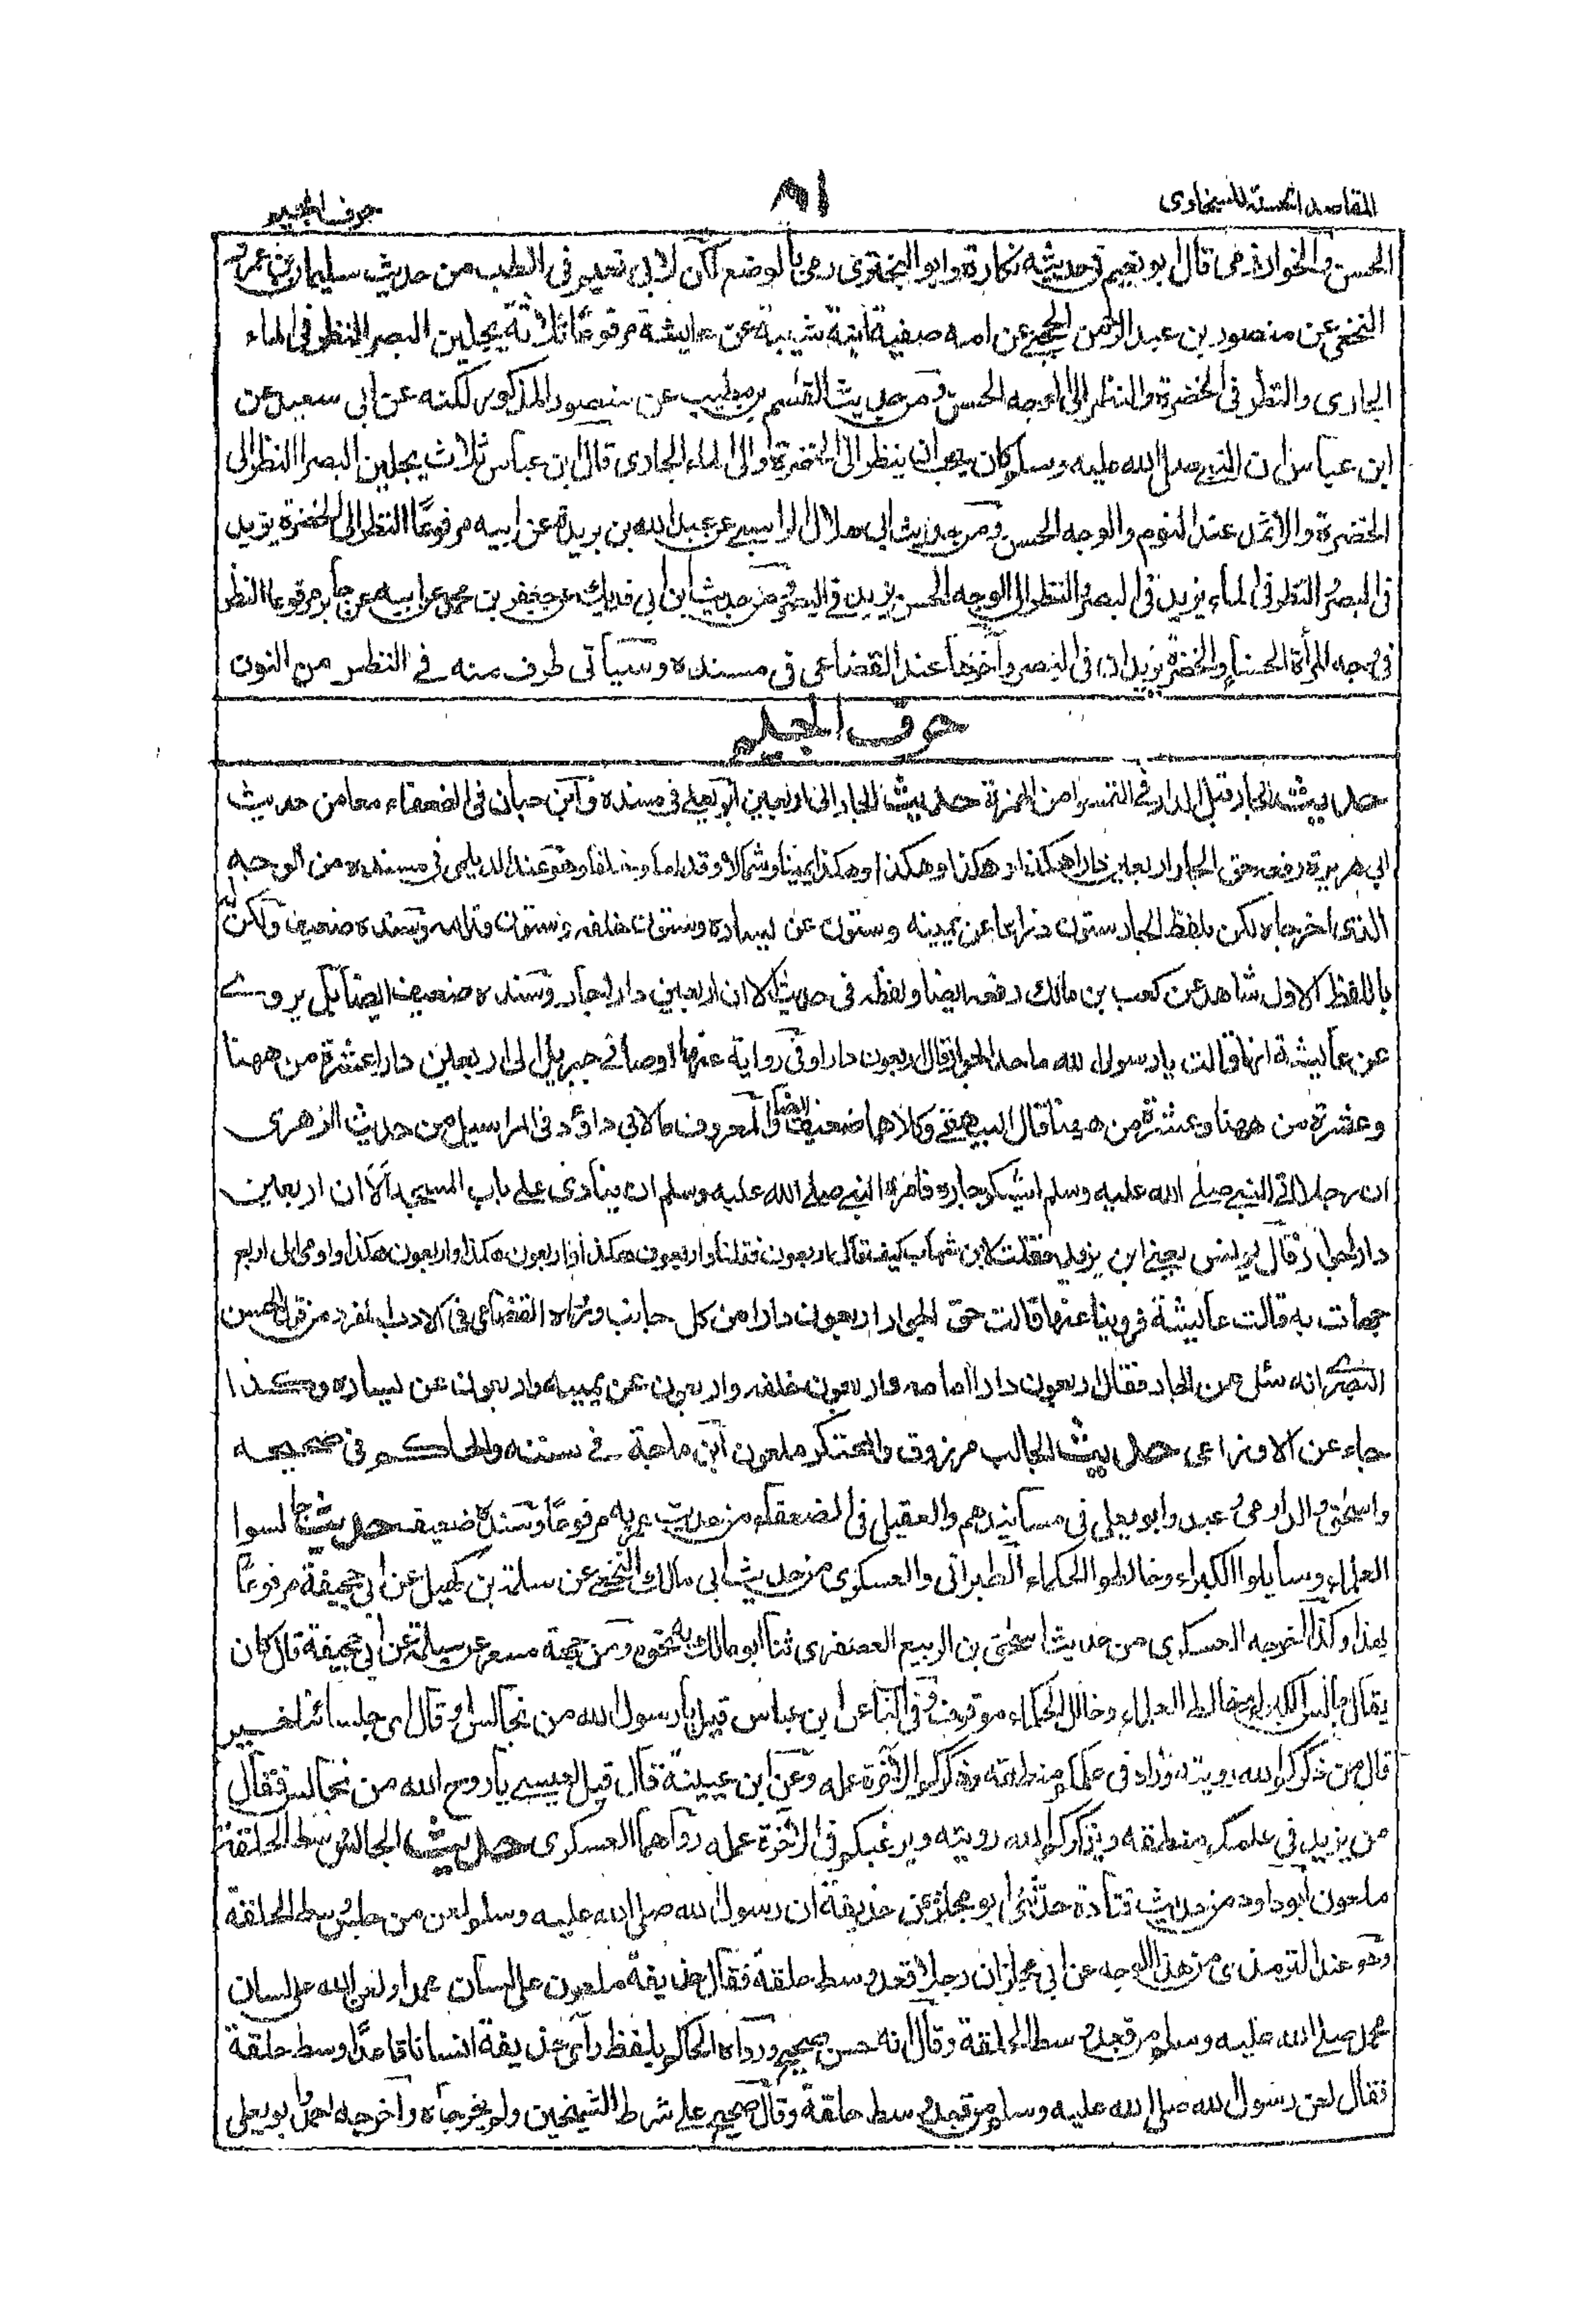 المقاصد الحسنة للسخاوى
٨١
حرف الجيم
الحسن والخوارزمى قال ابو نعيم فى حديثه نكارة وابو البخترى رمى بالوضع لكن لابى نعيم فى الطب من حديث سليمان بن عمرو
النخعى عن منصور بن عبد الرحمن الحجبى عن امه صفية ابنة شيبة عن عايشة مرفوعًا ثلاثة يجلين البصر النظر فى الماء
الجارى والنظر فى الخضرة والنظر الى الوجه الحسن ومن حديث القسم بن مطيب عن منصور المذكور لكنه عن ابى سعيد عن
ابن عباس ان النبى صلى الله عليه وسلم كان يحب ان ينظر الى الخضرة والى الماء الجارى قال ابن عباس ثلاث يجلين البصر النظر الى
الخضرة والاثمد عند النوم والوجه الحسن ومن حديث ابى هلال الراسبى عن عبد الله بن بريدة عن ابيه مرفوعًا النظر الى الخضرة يزيد
فى البصر والنظر فى الماء يزيد فى البصر والنظر الى الوجه الحسن يزيد فى البصر ومن حديث ابن ابى فديك عن جعفر بن محمد عن ابيه عن جابر مرفوعا النظر
فى وجه المرأة الحسناء والخضرة يزيدان فى البصر واخرجها عند القضاعى فى مسنده وسيأتى طرف منه فى النظر من النون
حرف الجيم
حديث الجار قبل الدار فى التمسوا من الهمزة حديث الجار الى اربعين ابو يعلى فى مسنده وابن حبان فى الضعفاء معا من حديث
ابى هريرة رفعه حق الجار اربعين دارا هكذا وهكذا وهكذا وهكذا يمينا وشمالا وقداما وخلفا وهو عند الديلمى فى مسنده من الوجه
الذى اخرجاه لكن بلفظ الجار ستون ذراعا عن يمينه وستون عن يساره وستون خلفه وستون قدامه وسنده ضعيف ولكن له
باللفظ الاول شاهد عن كعب بن مالك رفعه ايضا ولفظه فى حديث الا ان اربعين دارا جار وسنده ضعيف ايضا بل يروى
عن عائيشة انها قالت يا رسول الله ما حد الجوار قال اربعون دارا وفى رواية عنها اوصانى جبريل الى اربعين دارا عشرة من ههنا
وعشرة من ههنا وعشرة من ههنا قال البيهقى وكلاهما ضعيف ايضا والمعروف ما لابى داؤد فى المراسيل من حديث الزهرى
ان رجلا اتى النبى صلى الله عليه وسلم يشكو جاره فامره النبى صلى الله عليه وسلم ان ينادى على باب المسجد الا ان اربعين
دارا جوار قال يونس يعنى ابن يزيد فقلت لابن شهاب كيف قال اربعون فقلنا واربعون هكذا واربعون هكذا واربعون هكذا واومى الى اربع
جهات به قالت عائيشة فروينا عنها قالت حق الجوار اربعون دارا من كل جانب ورواه القضاعى فى الادب المفرد من قول الحسن
البصرى انه سئل عن الجار فقال اربعون دارا امامه واربعون خلفه واربعون عن يمينه واربعون عن يساره وكذا
جاء عن الاوزاعى حديث الجالب مرزوق والمحتكر ملعون ابن ماجة فى سننه والحاكم فى صحيحه
واسحٰق والدارمى وعبد وابو يعلى فى مسانيدهم والعقيلى فى الضعفاء من حديث عمر به مرفوعًا وسنده ضعيف حديث جالسوا
العلماء وسايلوا الكبراء وخالطوا الحكماء الطبرانى والعسكرى من حديث ابى مالك النخعى عن سلمة بن كهيل عن ابى جحيفة مرفوعًا
بهذا وكذا اخرجه العسكرى من حديث اسحٰق بن الربيع العصفرى ثنا ابو مالك به نحوه ومن جهة مسعر عن سلمة عن ابى جحيفة قال كان
يقال جالس الكبراء وخالط العلماء وخالل الحكماء موقوف وفى الباب عن ابن عباس قيل يا رسول الله من نجالس او قال اى جلسائنا خير
قال من ذكركم الله رويته وزاد فى علمكم منطقه وذكركم الاٰخرة عمله وعن ابن عيينة قال قيل لعيسى يا روح الله من نجالس فقال
من يزيد فى علمكم منطقه ويذكركم الله رويته ويرغبكم فى الاٰخرة عمله رواهما العسكرى حديث الجالس وسط الحلقة
ملعون ابو داود من حديث قتادة حدثنى ابو مجلز عن حذيفة ان رسول الله صلى الله عليه وسلم لعن من جلس وسط الحلقة
وهو عند الترمذى من هذا الوجه عن ابى مجلز ان رجلا قعد وسط حلقة فقال حذيفة ملعون على لسان محمد او لعن الله على لسان
محمد صلى الله عليه وسلم من قعد وسط الحلقة وقال انه حسن صحيح ورواه الحاكم بلفظ راى حذيفة انسانا قاعدًا وسط حلقة
فقال لعن رسول الله صلى الله عليه وسلم من قعد وسط حلقة وقال صحيح على شرط الشيخين ولم يخرجاه واخرجه احمد وابو يعلى